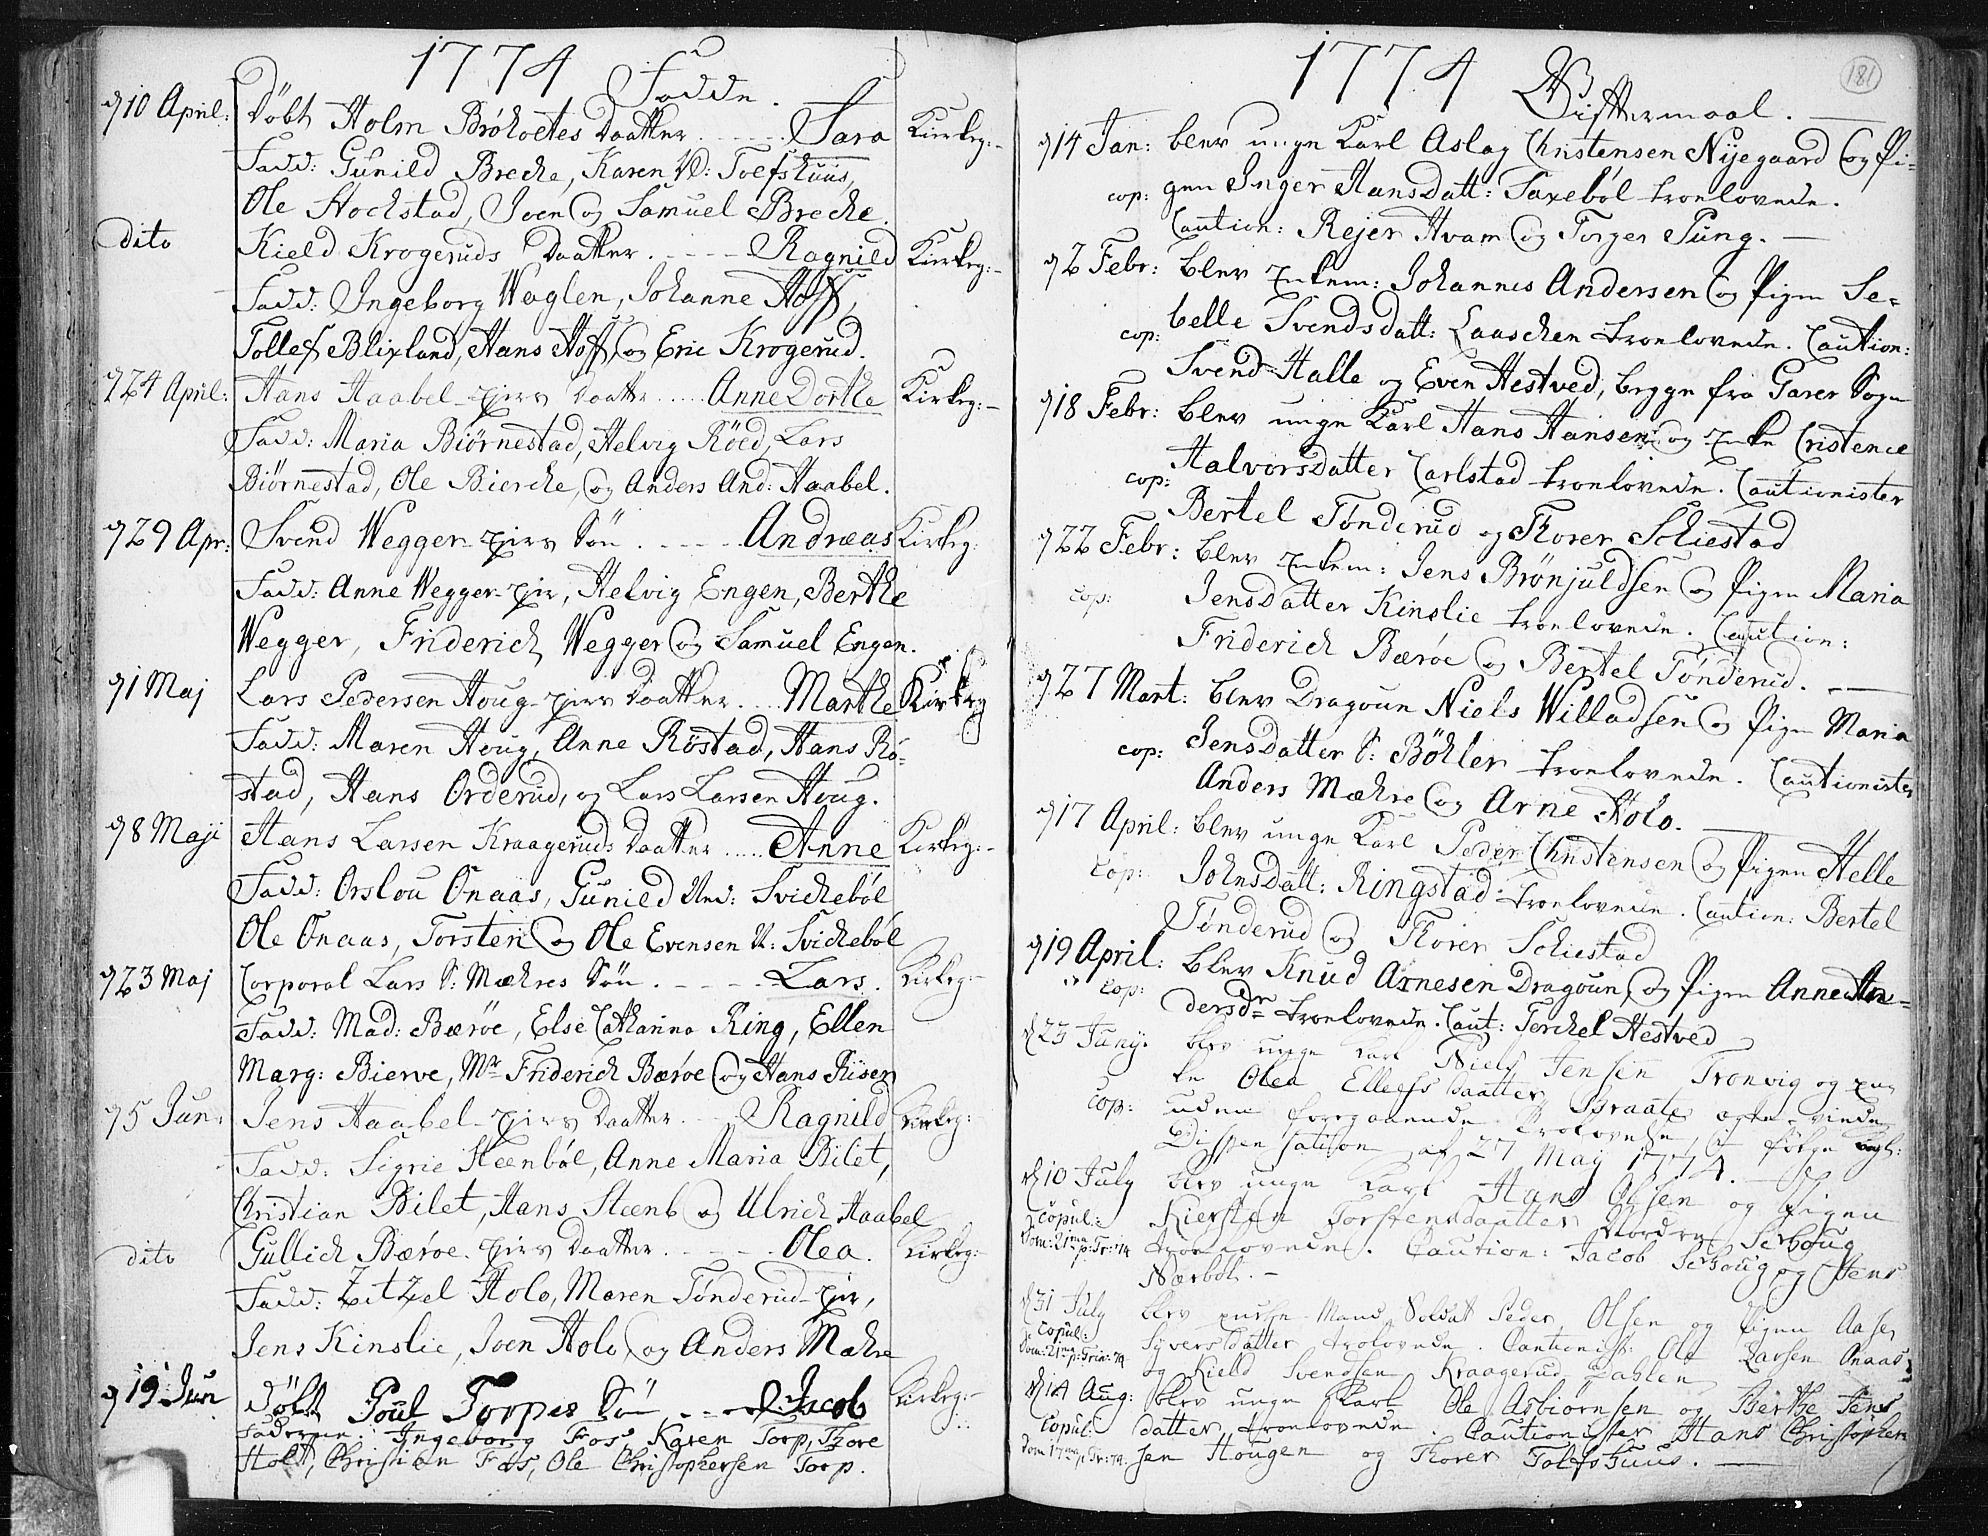 1774
Fadde.
d 10 April: Döbt Holm Bröhoetes Daatter ----- Sara Kirkeg:
Fadd: Gunild Breche, Karen N: Toefshuus,
Ole Hochstad, Joen og Samuel Breche.
dito Kield Krogeruds Daatter. ---- Ragnild Kirkeg:
Fadd: Ingeborg Waglen, Johanne Hoff,
Tollef Blixland, Hans Hoff, og Eric Krogerud.
d 24 April: Hans Haabel-ejers Daatter ..... Anne Dorthe Kirkeg:
Fadd: Maria Biörnestad, Helvig Röed, Lars
Biörnestad, Ole Bierche, og Anders And: Haabel.
d 29 Apr: Svend Wegger-ejers Sön. ---- Andreas Kirkeg:
Fadd: Anne Wegger-eje, Helvig Engen, Berthe
Wegger, Friderich Wegger og Samuel Engen.
d 1 Maj Lars Pedersen Houg-ejers Daatter .... Marthe Kirkeg
Fadd: Maren Houg, Anne Röstad, Hans Rö-
stad, Hans Orderud, og Lars Larsen Houg.
d 8 Maji Hans Larsen Kraageruds Daatter ..... Anne Kirkeg:
Fadd: Orslou Onaas, Gunild Svicheböl
Ole Onaas, Torsten og Ole Evensen N: Svicheböl
d 23 Maj Corporal Lars S: Mæhres Sön. ---- Lars. Kirkeg:
Fadd: Mad: Bæröe, Else Catharina Ring, Ellen
Marg: Bierve, Mr Friderich Bæröe og Hans Riisen
d 5 Jun: Jens Haabel-ejers Daatter -- Ragnild Kirkeg:
Fadd: Sigrie Steenböl, Anne Maria Bilet,
Christian Bilet, Hans Steenb og Ulrich Haabel
dito Gullich Bæröe-ejers Daatter. ---- Olea. Kirkeg:
Fadd: Zitzel Holo, Maren Tönderud-eje,
Jens Kinslie, Joen Holo, og Anders Mæhre
d 19 Jun Döbt Poul Torpes Sön --- Jacob Kirkeg:
Fadderne: Ingeborg Fos, Karen Torp, Thore
Holt, Christen Fos, Ole Christophersen Torp.
181
1774
Gifttermaal.
d 14 Jan: blev unge Karl Aslag Christensen Nyegaard og Pi-
cop: gen Inger Hansdatt: Taxeböl troelovede.
Caution: Rejer Hvam og Torger Pung.
d 2 Febr: blev Enkem: Johannes Andersen og Pigen Se-
cop: belle Svendsdatt: Laaschen troelovede. Caution:
Svend Halle og Even Hestved, begge fra Garer Sogn
d 18 Febr: blev unge Karl Hans Hansen og Enke Cristence
cop: Halvorsdatter Carlstad troelovede. Cautionister
Bertel Tönderud og Thorer Schiestad
d 22 Febr: blev Enkem: Jens Brönjuldsen og Pigen Maria
cop: Jensdatter Kinslie troelovede. Caution:
Friderich Bæröe og Bertel Tönderud.
d 27 Mart: blev Dragoun Niels Willadsen og Pigen Maria
cop: Jensdatter S: Böhler troelovede. Cautionister
Anders Mæhre og Arne Holo.
d 17 April: blev unge Karl Peder Christensen og Pigen Helle
cop: Johnsdatt: Ringstad troelovede. Caution: Bertel
Tönderud og Thorer Schiestad
d 19 April: blev Knud Arnesen Dragoun, og Pigen Anne An-
cop: dersdr troelovede. Caut: Torchel Hestved
d 23 Juny: blev unge Karl Niels Jensen Tronvig og en-
ke Olea Ellefsdaatter Braate
cop: uden foregaaende Trolovelse, i følge
Dispensation af 27 Maj 1774.
d 10 July blev unge Karl Hans Olsen og Pigen
copul: Kiersten Torstensdaatter Nordre Serboug
Dom: 21ma p: Tr: 74 troelovede. Caution: Jacob Serboug og Jens
Nærböl.
d 31 July blev Mand Soldat Peder Olsen og Pigen Aase
copul: Syversdatter trolovede. Cautionist: Ole Larsen Onaas
Dom: 21ma p: Trin: 74 og Kield Svendsen Kraagerud Dahlen
d 14 Aug: blev unge Karl Ole Asbiörnsen og Berthe Jens
copul: datter troelovede. Cautionister Hans Christopher
Dom 17ma p: Tr: 74. sen Hougen og Thorer Tolfshuus.